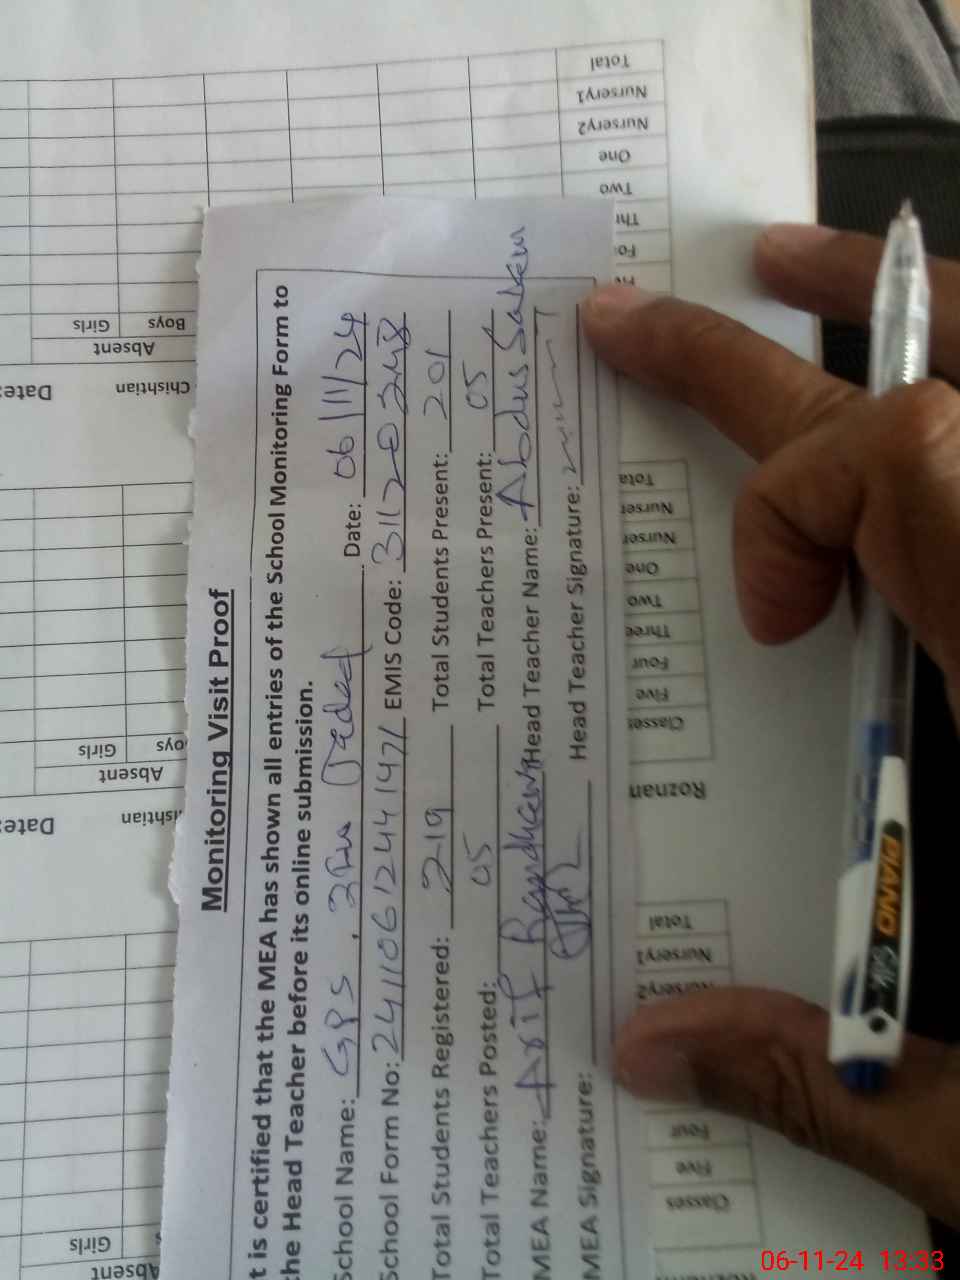 Monitoring Visit Proof
t is certified that the MEA has shown all entries of the School Monitoring Form to
the Head Teacher before its online submission.
School Name: GPS, Date: 06/11/24
School Form No: 24110612441471 EMIS Code: 31120348
Total Students Registered: 219 Total Students Present: 201
Total Teachers Posted: 05 Total Teachers Present: 05
MEA Name: Arif Randhawa Head Teacher Name: Abdus Salam
MEA Signature: Head Teacher Signature:
Total
Nursery1
Nursery2
One
Two
Absent
Boys Girls
Chishtian
Date:
Tota
Nurser
Nurser
One
Two
Three
Four
Five
Classes
Absent
oys Girls
ishtian
Date
Roznan
Total
Nursery1
Nursery2
Four
Five
Classes
Girls
Absent
PIANO
06-11-24 13:33